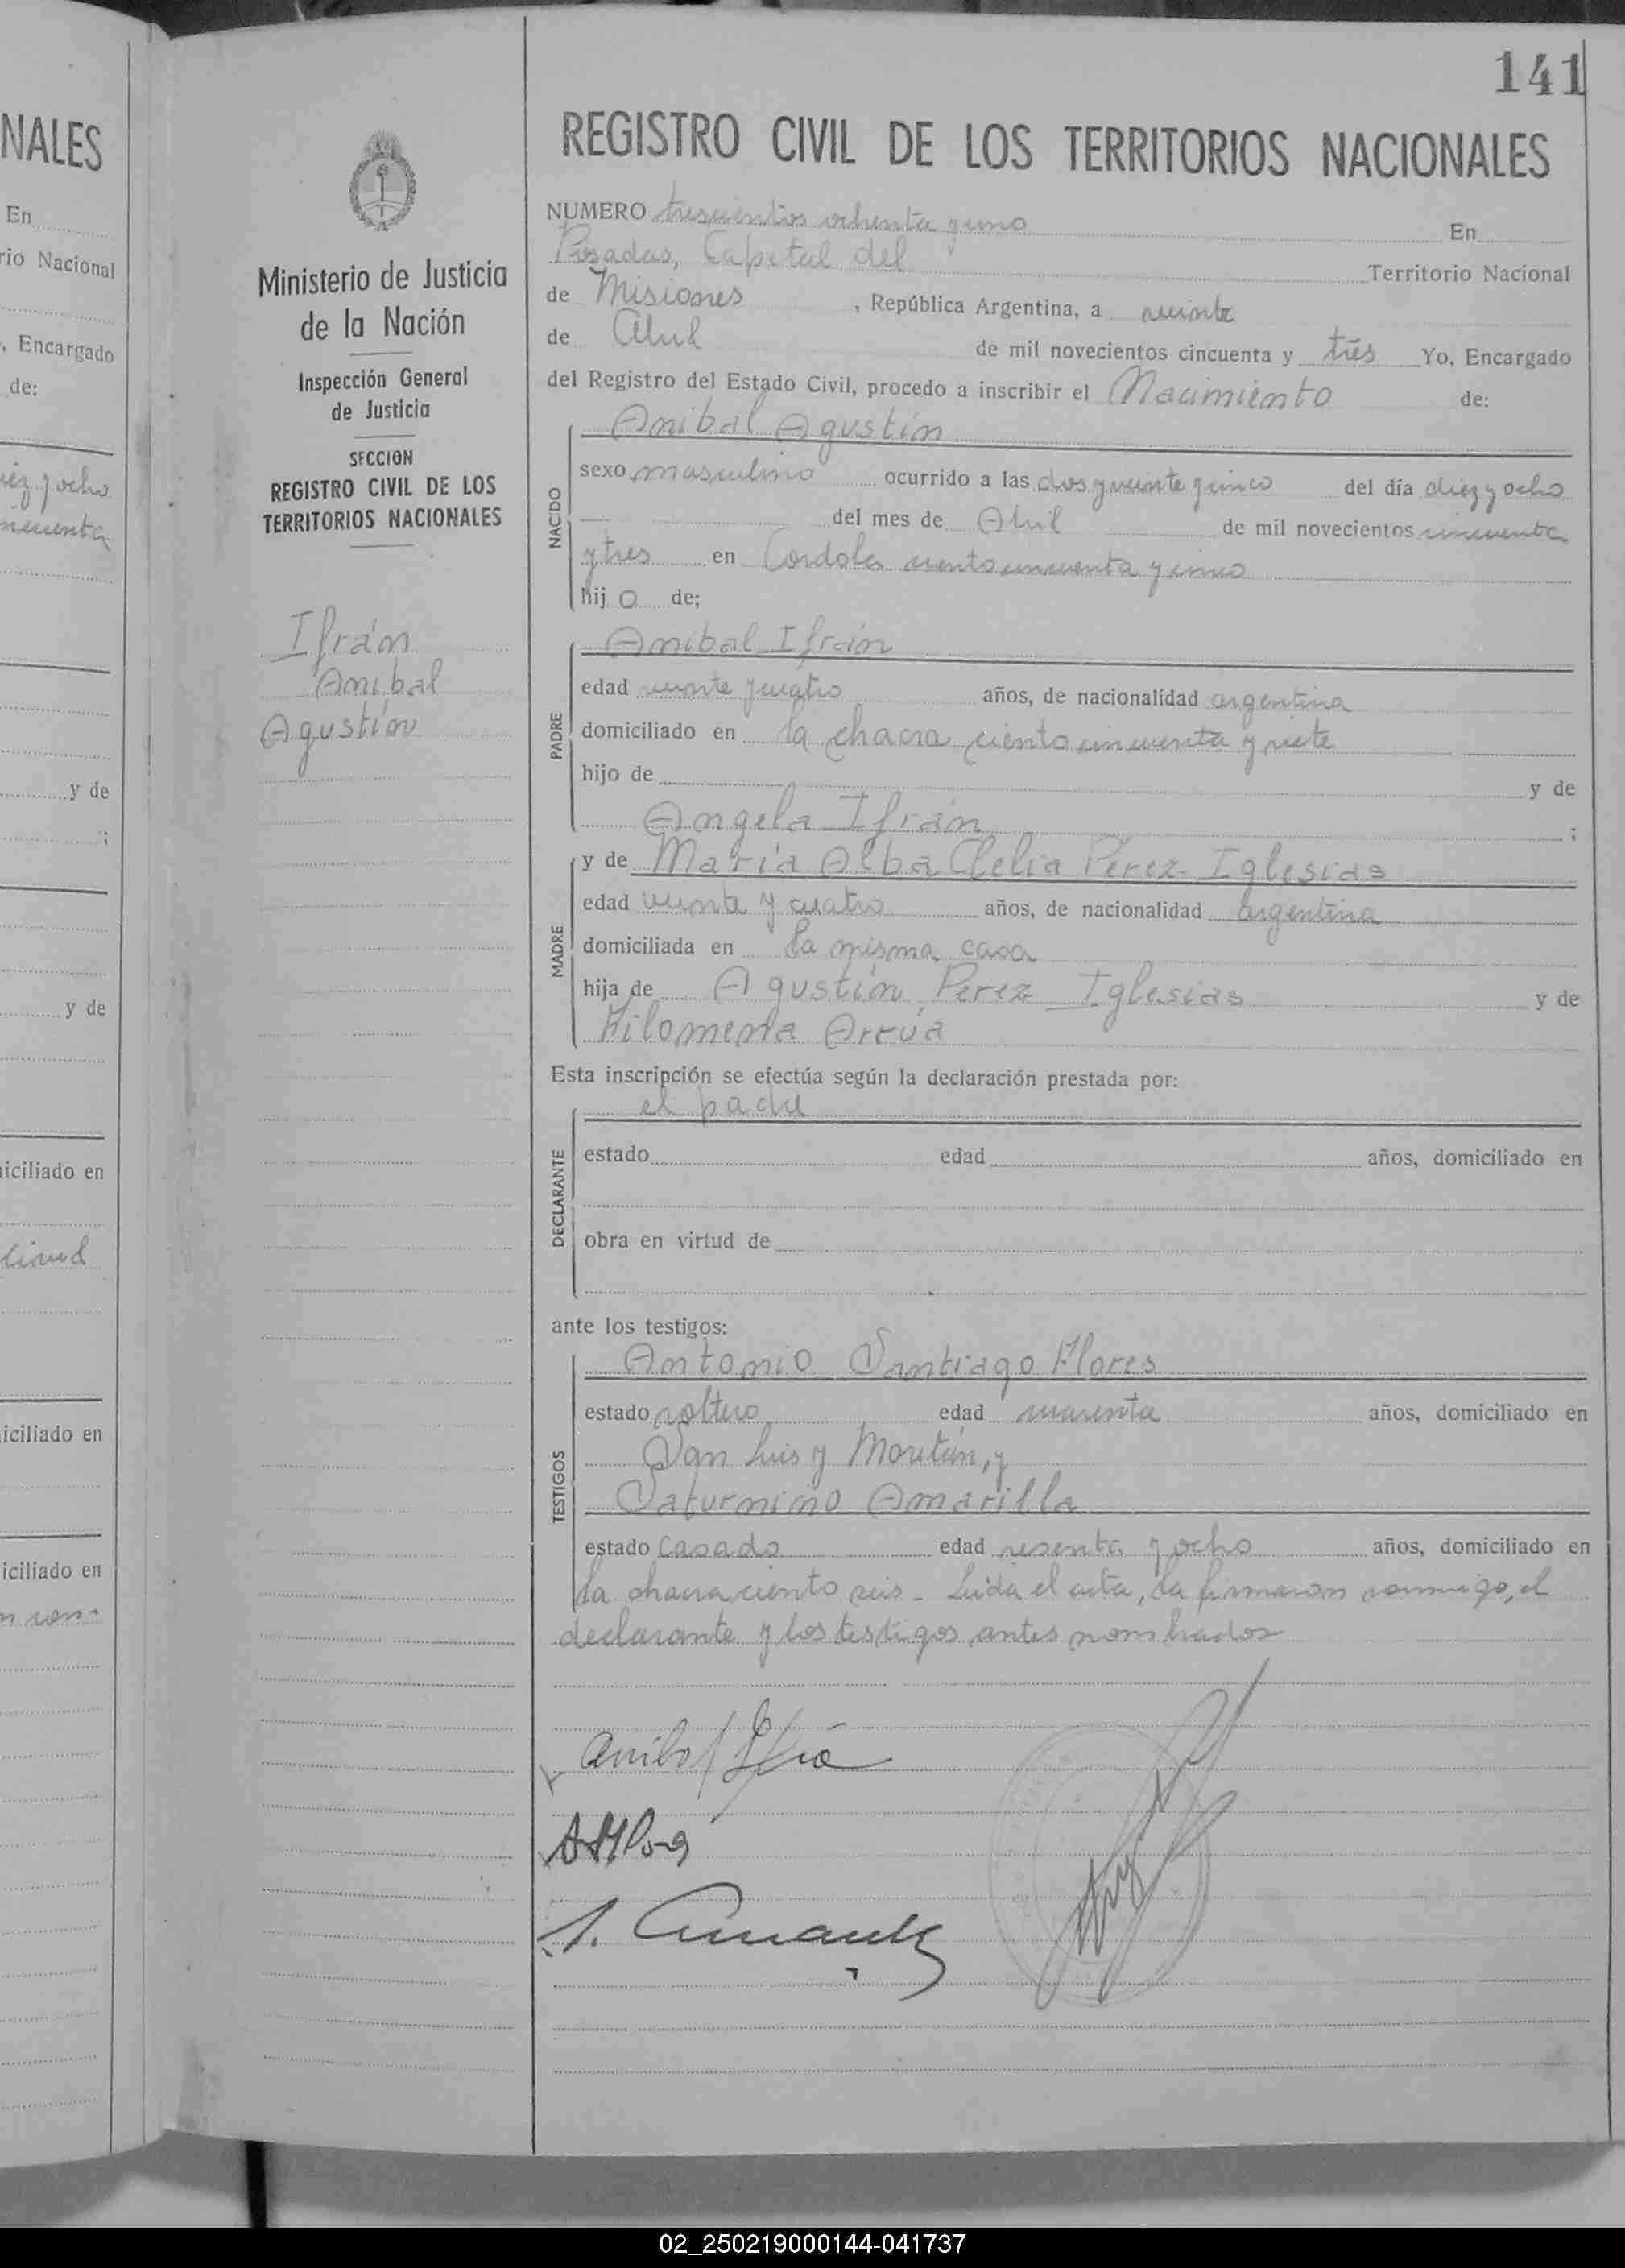 141
NALES
En
rio Nacional
, Encargado
de:
diez y ocho
cincuenta
y de
;
y de
iciliado en
iciliado en
iciliado en
Ministerio de Justicia
de la Nación
Inspección General
de Justicia
SECCION
REGISTRO CIVIL DE LOS
TERRITORIOS NACIONALES
Ifrán
Anibal
Agustín
REGISTRO CIVIL DE LOS TERRITORIOS NACIONALES
NUMERO trescientos ochenta y uno En
Posadas, Capital del Territorio Nacional
de Misiones, República Argentina, a veinte
de Abril de mil novecientos cincuenta y tres Yo, Encargado
del Registro del Estado Civil, procedo a inscribir el Nacimiento de:
Anibal Agustín
NACIDO
sexo masculino ocurrido a las dos y veinte y cinco del día diez y ocho
del mes de Abril de mil novecientos cincuenta
y tres en Cordoba ciento cincuenta y cinco
hijo de;
Anibal Ifrán
PADRE
edad veinte y cuatro años, de nacionalidad argentina
domiciliado en la chacra ciento cincuenta y siete
hijo de y de
Angela Ifrán ;
y de María Alba Clelia Pérez Iglesias
MADRE
edad veinte y cuatro años, de nacionalidad argentina
domiciliada en la misma casa
hija de Agustín Perez Iglesias y de
Filomena Arrúa
Esta inscripción se efectúa según la declaración prestada por:
el padre
DECLARANTE
estado edad años, domiciliado en
obra en virtud de
ante los testigos:
Antonio Santiago Flores
TESTIGOS
estado soltero edad cuarenta años, domiciliado en
San Luis y Moritán, y
Saturnino Amarilla
estado casado edad sesenta y ocho años, domiciliado en
la chacra ciento seis - Leida el acta, la firmaron conmigo, el
declarante y los testigos antes nombrados
Anibal Ifrán
02_250219000144-041737